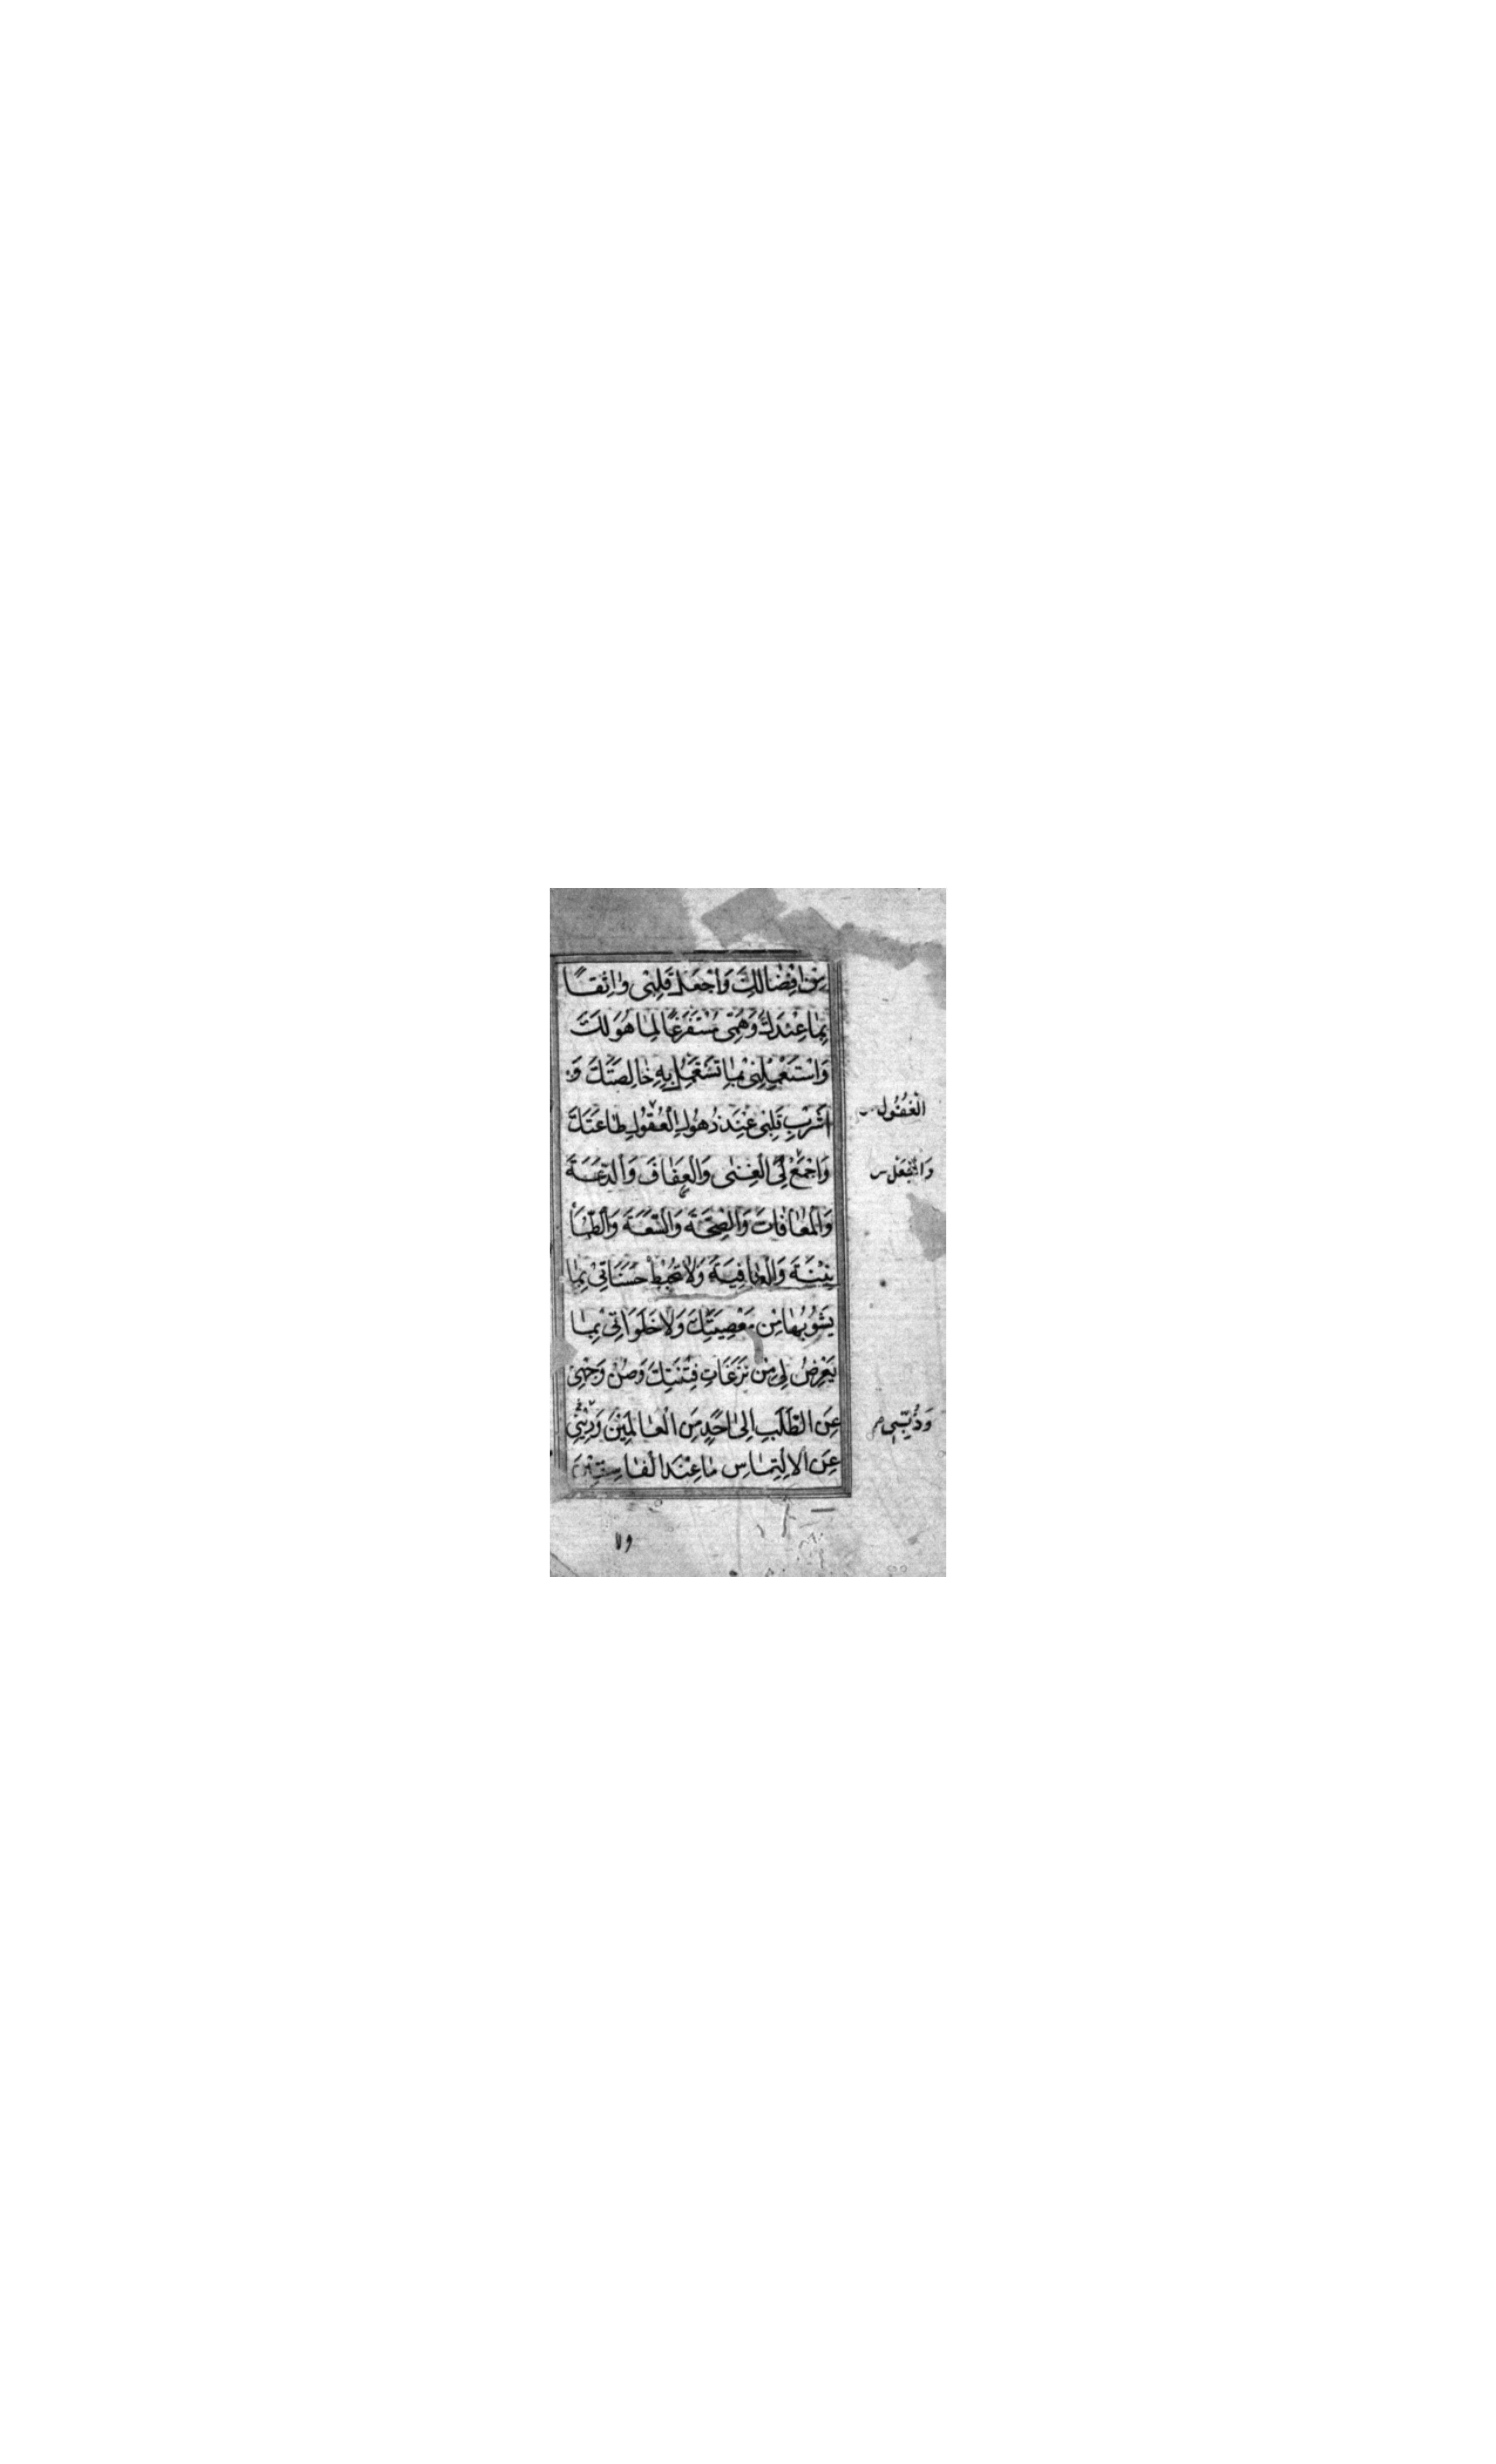 مِنْ اِفْضَالِكَ وَاجْعَلْ قَلْبِى وَاثِقًا
بِمَا عِنْدَكَ وَهَمِّى مُسْتَفْرَغًا لِمَا هُوَ لَكَ
وَاسْتَعْمِلْنِى بِمَا تَسْتَعْمِلُ بِهِ خَالِصَتَكَ وَ
اَشْرِبْ قَلْبِى عِنْدَ ذُهُولِ الْعُقُولِ طَاعَتَكَ
وَاجْمَعْ لِىَ الْغِنٰى وَالْعَفَافَ وَالدَّعَةَ
وَالْمُعَافَاتَ وَالصِّحَّةَ وَالسَّعَةَ وَالطُّمَأْ
نِيْنَةَ وَالْعَافِيَةَ وَلَا تُحْبِطْ حَسَنَاتِىْ بِمَا
يَشُوْبُهَا مِنْ مَعْصِيَتِكَ وَلَا خَلَوَاتِىْ بِمَا
يَعْرِضُ لِىْ مِنْ نَزَغَاتِ فِتْنَتِكَ وَصُنْ وَجْهِىْ
عَنِ الطَّلَبِ اِلٰى اَحَدٍ مِنَ الْعَالَمِيْنَ وَ
عَنِ الْاِلْتِمَاسِ مَا عِنْدَ الْفَاسِقِيْنَ